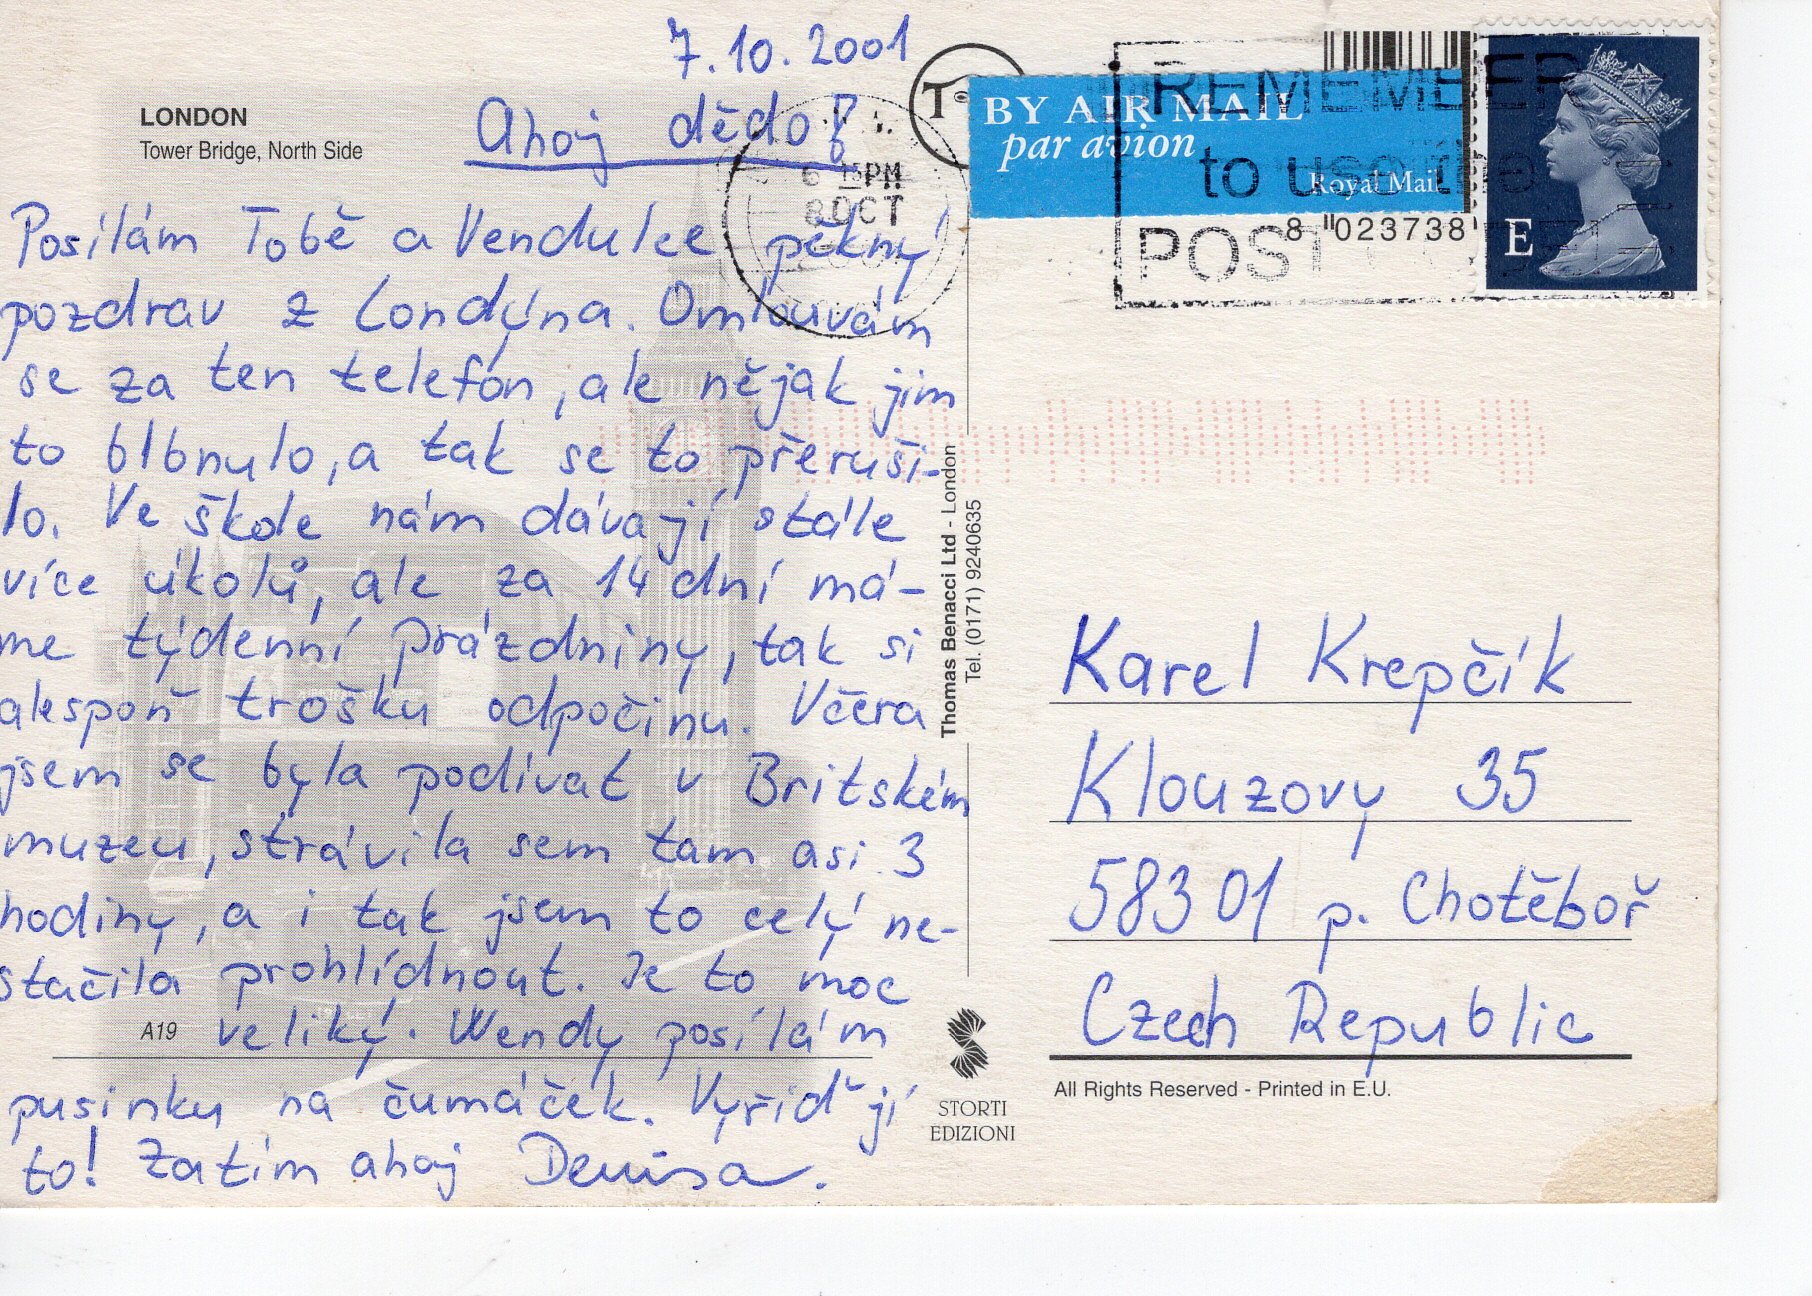 7.10.2001
LONDON
Tower Bridge, North Side
Ahoj dědo!
Posílám Tobě a Vendulce pěkný
pozdrav z Londýna. Omlouvám
se za ten telefón, ale nějak jim
to blbnulo, a tak se to přeruši-
lo. Ve škole nám dávají stále
více úkolů, ale za 14 dní má-
me týdenní prázdniny, tak si
alespoň trošku odpočinu. Včera
jsem se byla podívat v Britském
muzeu, strávila sem tam asi 3
hodiny, a i tak jsem to celý ne-
stačila prohlídnout. Je to moc
A19
veliký. Wendy posílám
pusinku na čumáček. Vyřiď jí
to! Zatím ahoj Denisa.
Thomas Benacci Ltd - London
Tel. (0171) 9240635
STORTI
EDIZIONI
6 15PM
8 OCT
T
BY AIR MAIL
par avion
Royal Mail
8 023738
REMEMBER
to use the
POST
E
Karel Krepčík
Klouzovy 35
58301 p. Chotěboř
Czech Republic
All Rights Reserved - Printed in E.U.